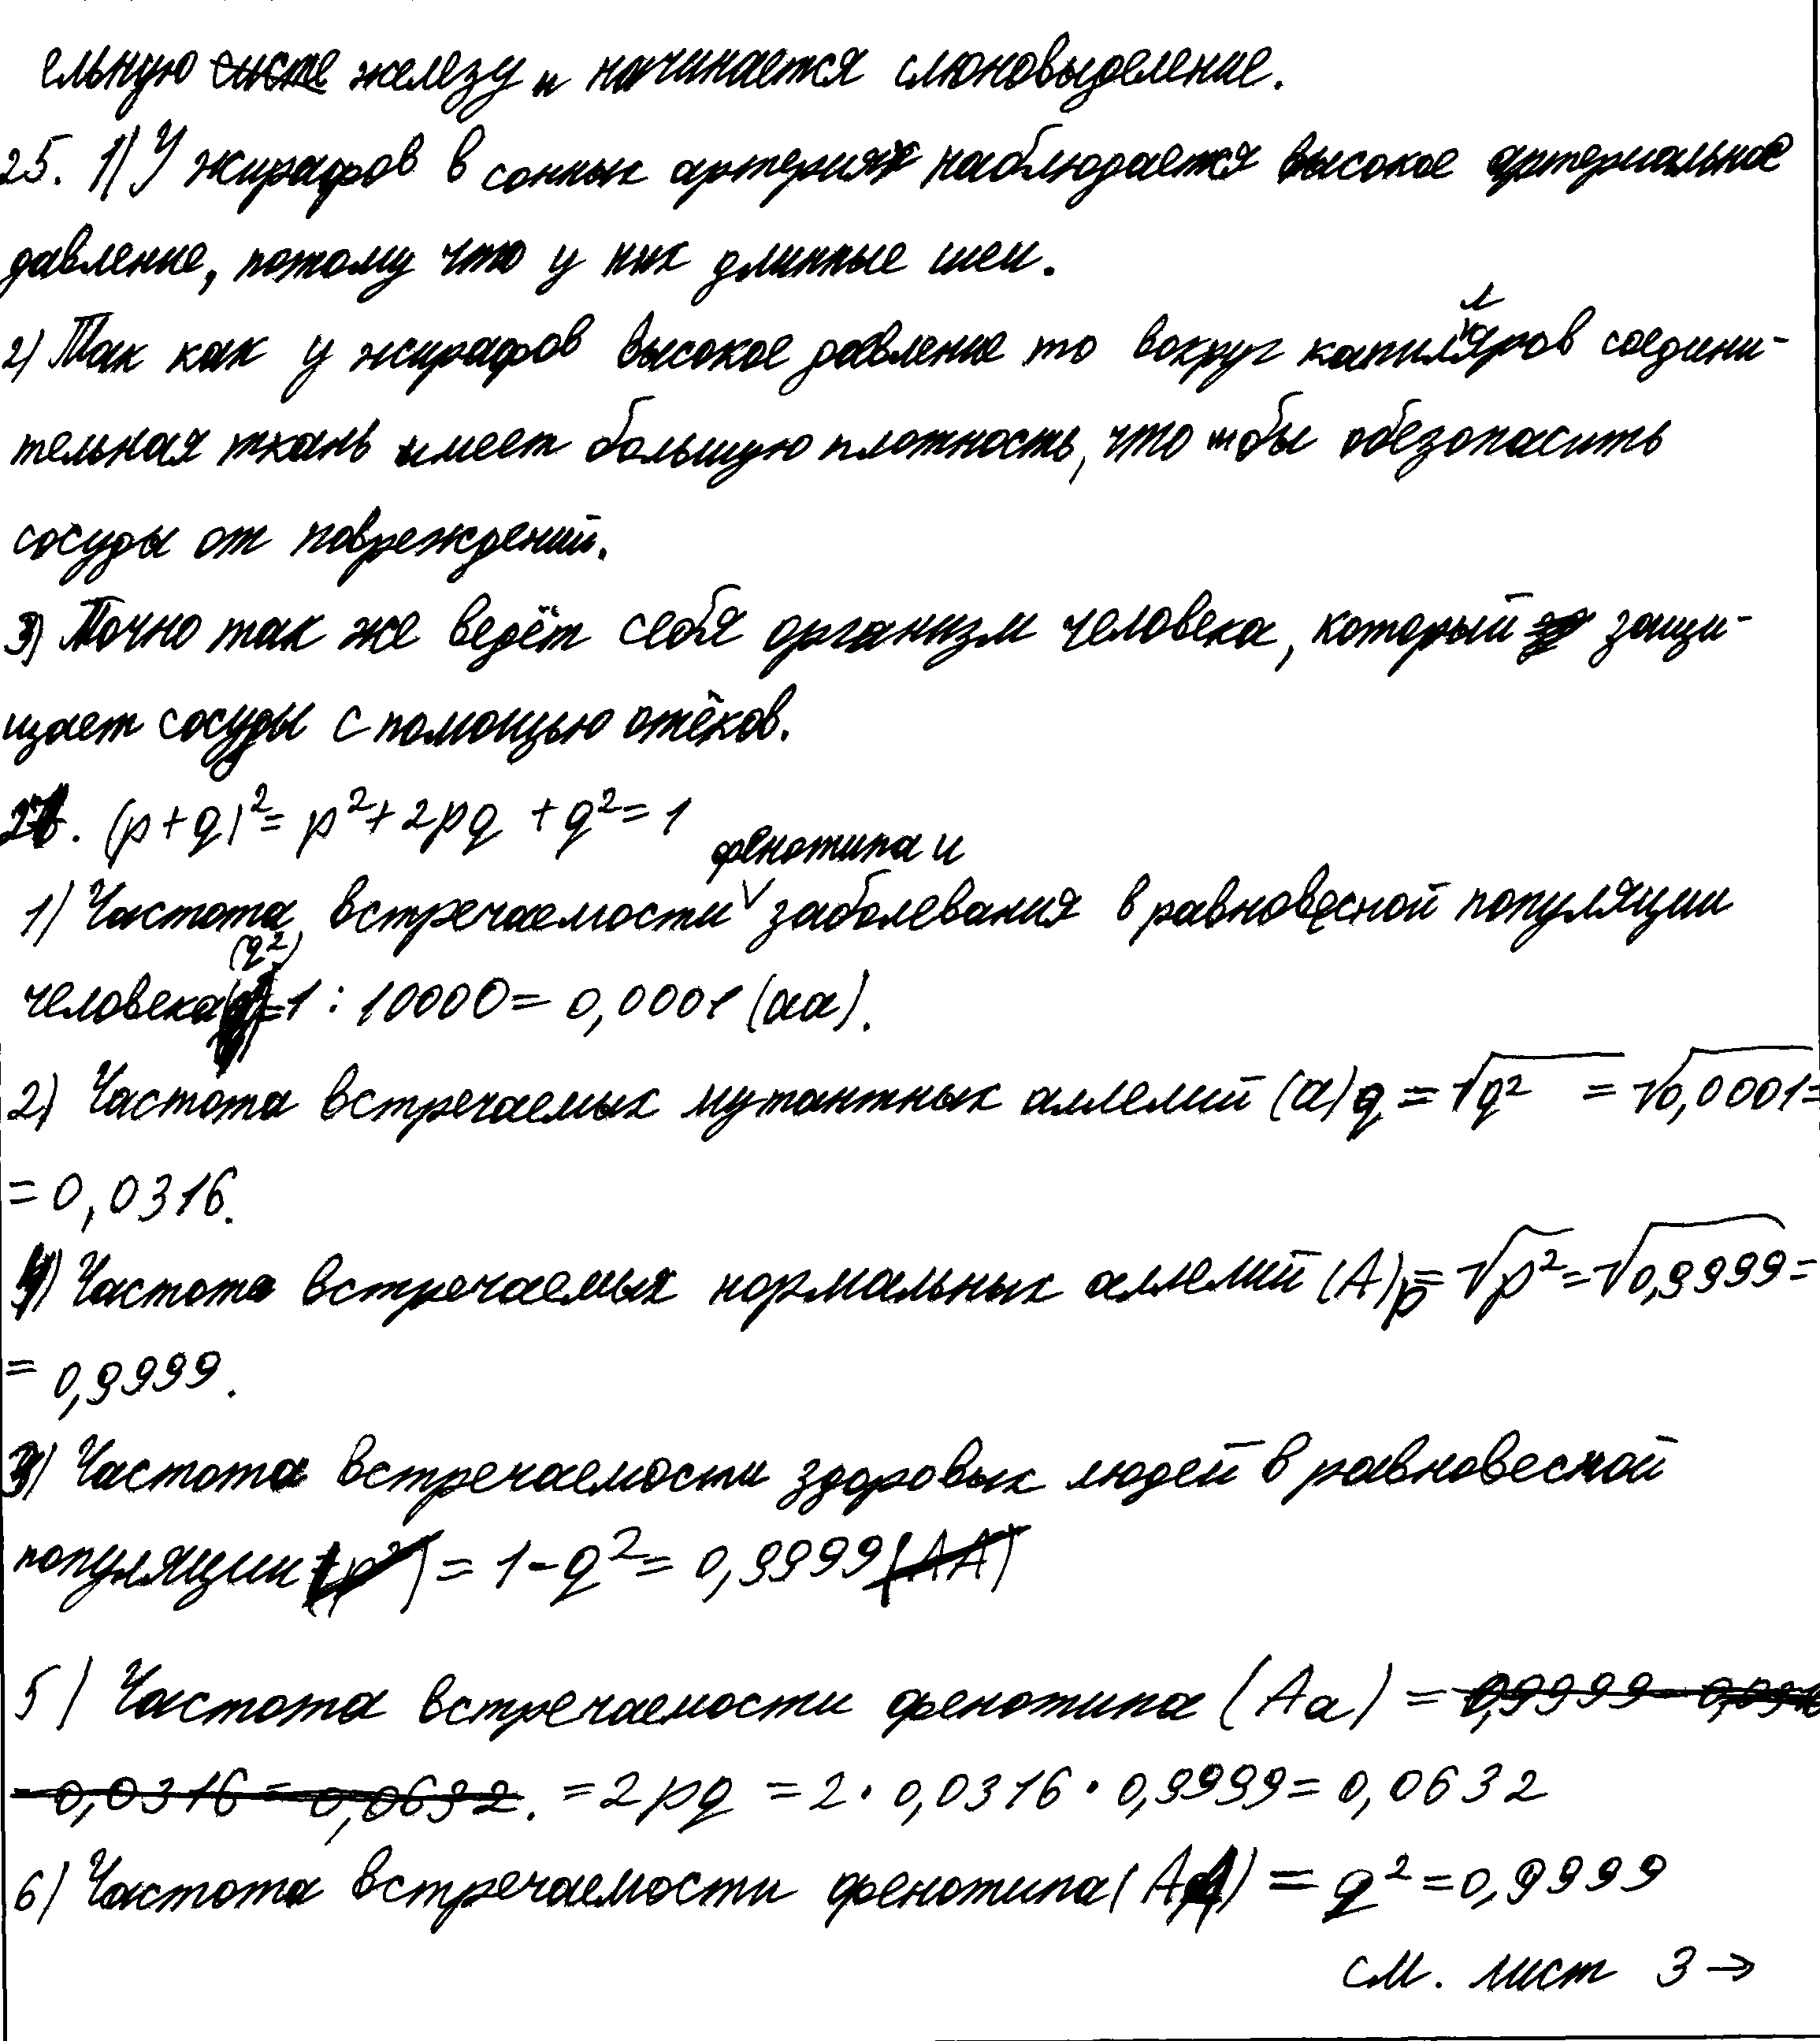 ельную систе железу и начинается слюновыделение.
25. 1) У жирафов в сонных артериях наблюдается высокое артериальное
давление, потому что у них длинные шеи.
2) Так как у жирафов высокое давление то вокруг капилляров соедини-
тельная ткань имеет большую плотность, что бы обезопасить
сосуды от повреждений.
3) Точно так же ведёт себя организм человека, который защи-
щает сосуды с помощью отёков.
27. (p+q)²= p²+2pq +q²=1
фенотипа и
1) Частота встречаемости заболевания в равновесной популяции
(q²)
человека =1 : 10000= 0,0001 (аа).
2) Частота встречаемых мутантных аллелий (а) q = √q² = √0,0001=
= 0,0316.
4) Частота встречаемых нормальных аллелий (А) p= √p²=√0,9999=
= 0,9999.
3) Частота встречаемости здоровых людей в равновесной
популяции (p²) = 1-q²= 0,9999 (АА)
5) Частота встречаемости фенотипа (Аа) = 0,9999 - 0,0316
- 0,0316 = 0,0632. =2pq =2·0,0316·0,9999=0,0632
6) Частота встречаемости фенотипа (АА) = q²=0,9999
см. лист 3→